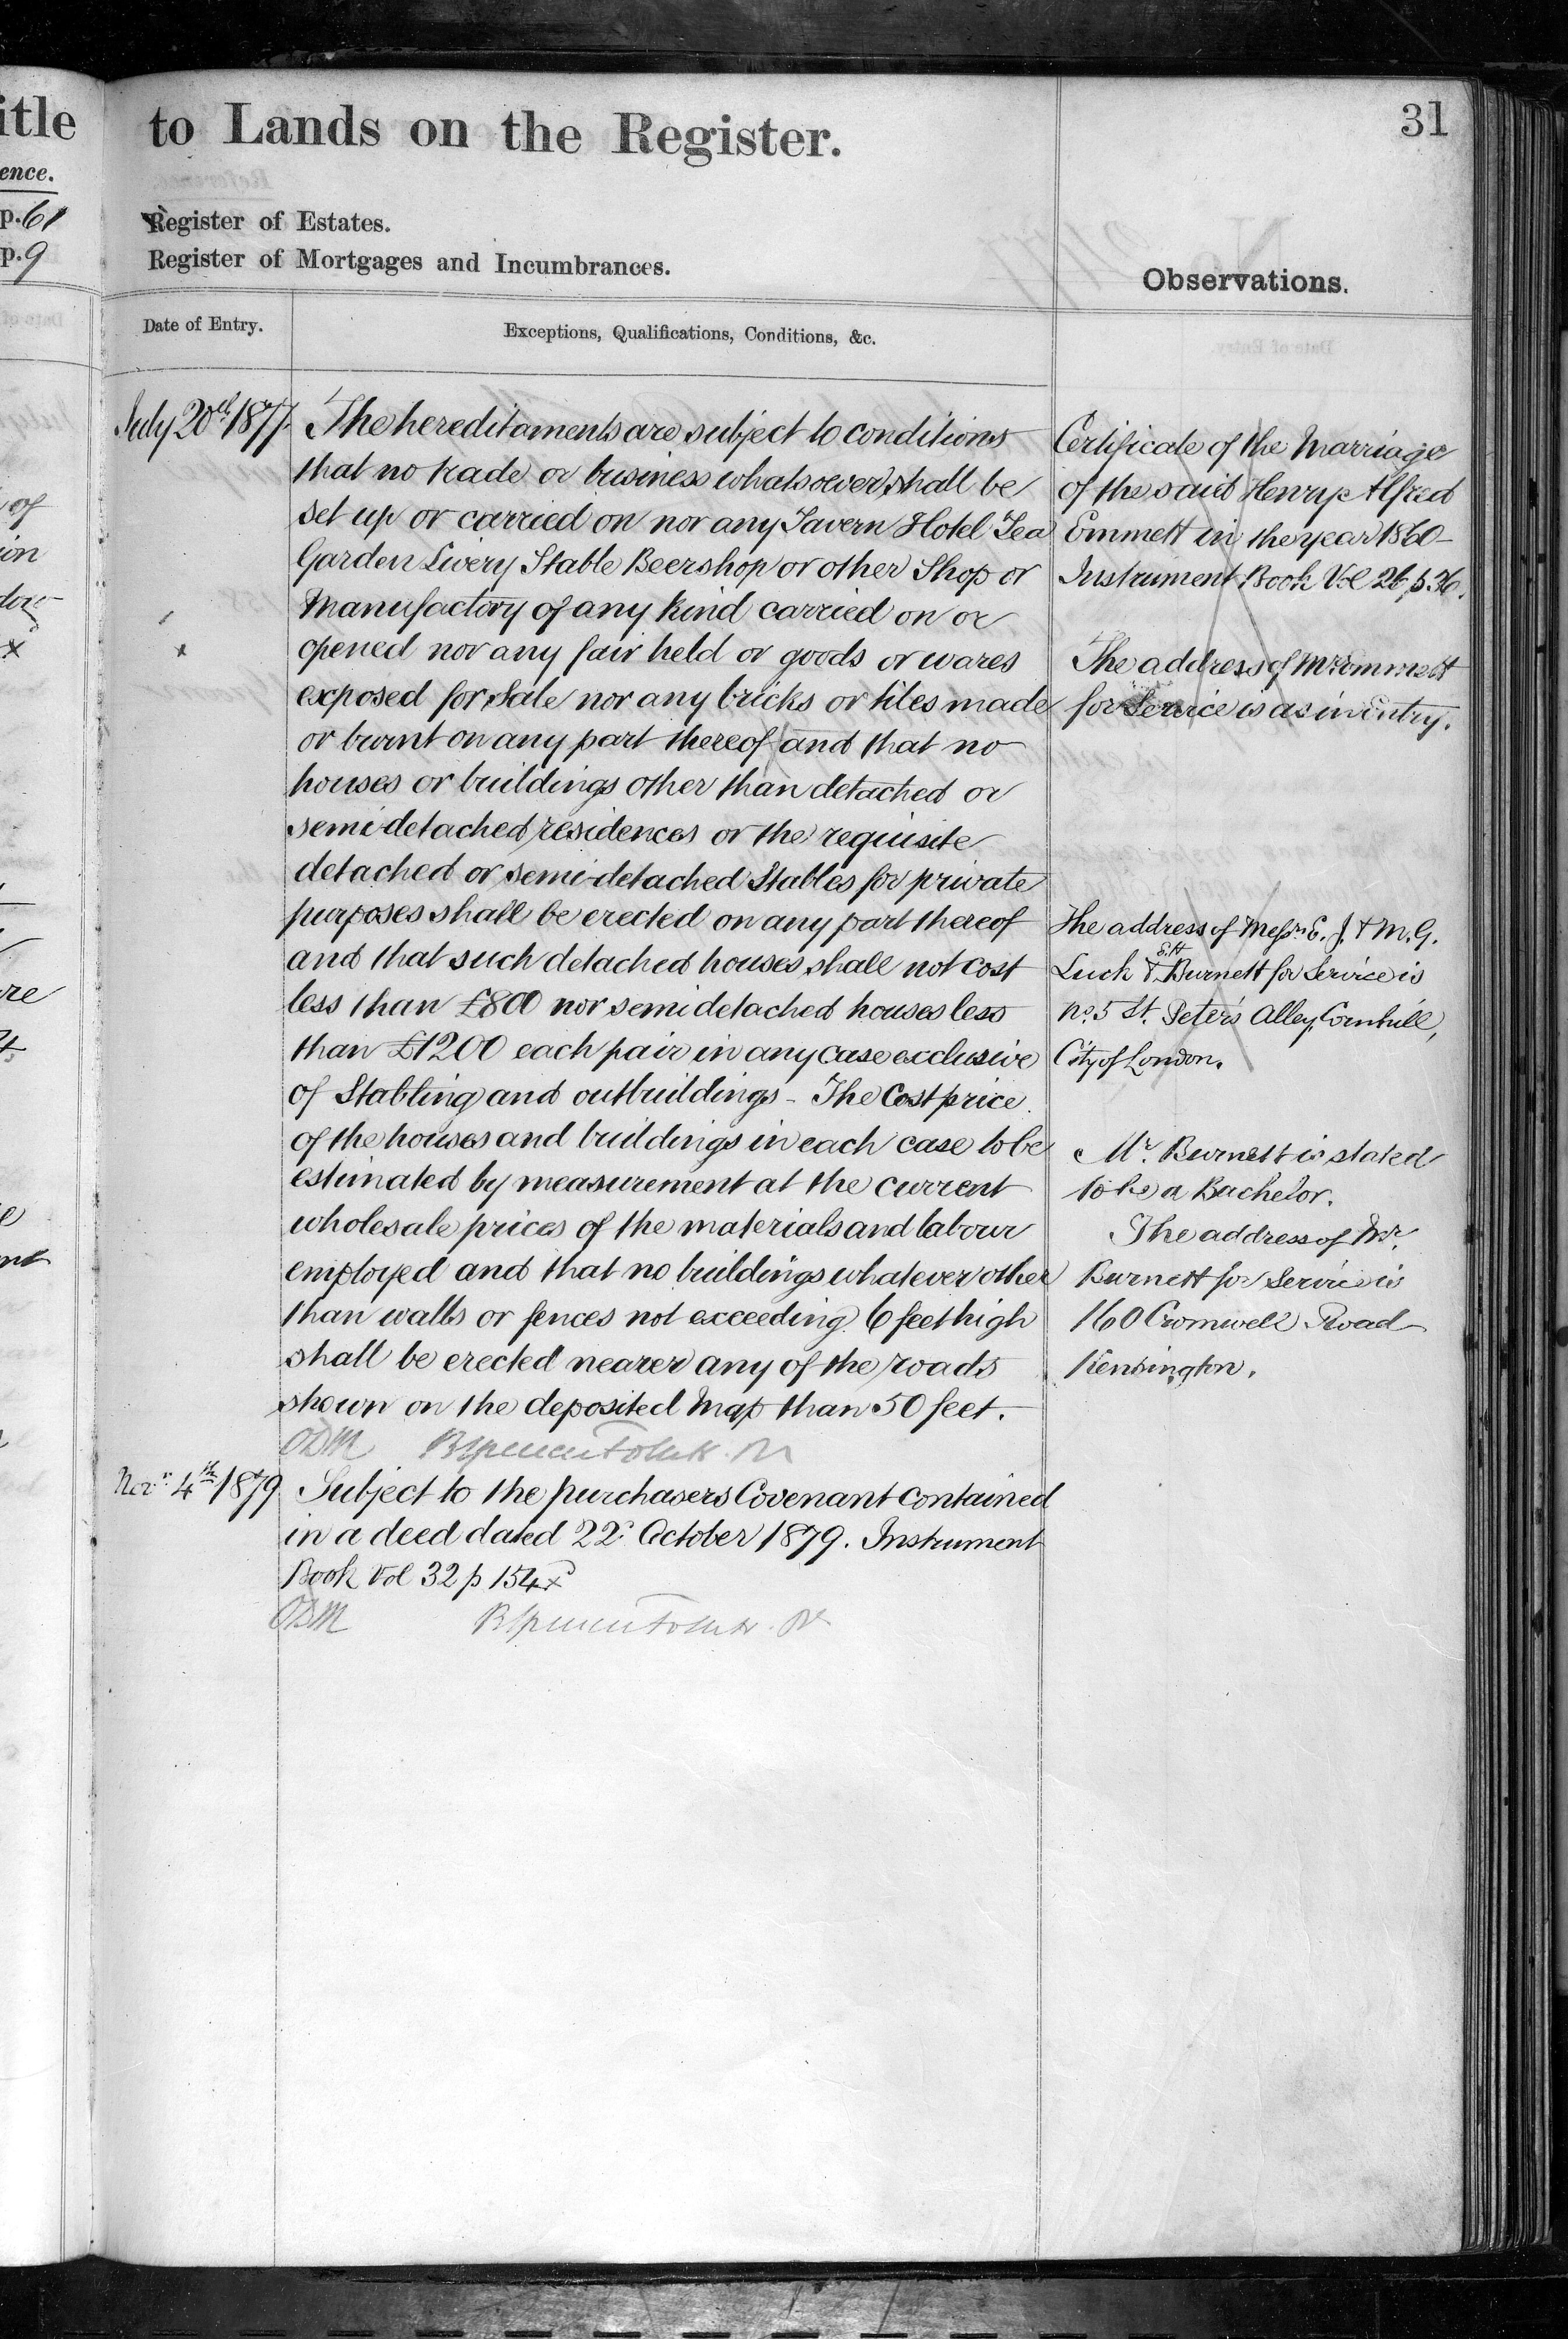 itle
ence.
p. 61
p. 9
to Lands on the Register.
31
Register of Estates.
Register of Mortgages and Incumbrances.
Observations.
Date of Entry.
Exceptions, Qualifications, Conditions, &c.
July 20th 1877.
The hereditaments are subject to conditions
that no trade or business whatsoever shall be
set up or carried on nor any Tavern Hotel Tea
Garden Livery Stable Beershop or other Shop or
Manufactory of any kind carried on or
opened nor any fair held or goods or wares
exposed for Sale nor any bricks or tiles made
or burnt on any part thereof and that no
houses or buildings other than detached or
semi detached residences or the requisite
detached or semi-detached Stables for private
purposes shall be erected on any part thereof
and that such detached houses shall not cost
less than £800 nor semi detached houses less
than £1200 each pair in any case exclusive
of Stabling and outbuildings - The Cost price
of the houses and buildings in each case to be
estimated by measurement at the current
wholesale prices of the materials and labour
employed and that no buildings whatever other
than walls or fences not exceeding 6 feet high
shall be erected nearer any of the roads
shown on the deposited Map than 50 feet.
Novr. 4th 1879
Subject to the purchasers Covenant contained
in a deed dated 22d October 1879. Instrument
Book Vol 32 p 154 x
Certificate of the Marriage
of the said Henry Alfred
Emmett in the year 1860
Instrument Book Vol 26 p. 36.
The address of Mr Emmett
for Service is as in Entry.
The address of Messrs E. J. & M. G.
Luck & E. H. Burnett for Service is
No. 5 St. Peter's Alley, Cornhill,
City of London.
Mr. Burnett is stated
to be a Bachelor.
The address of Mr.
Burnett for Service is
160 Cromwell Road
Kensington.